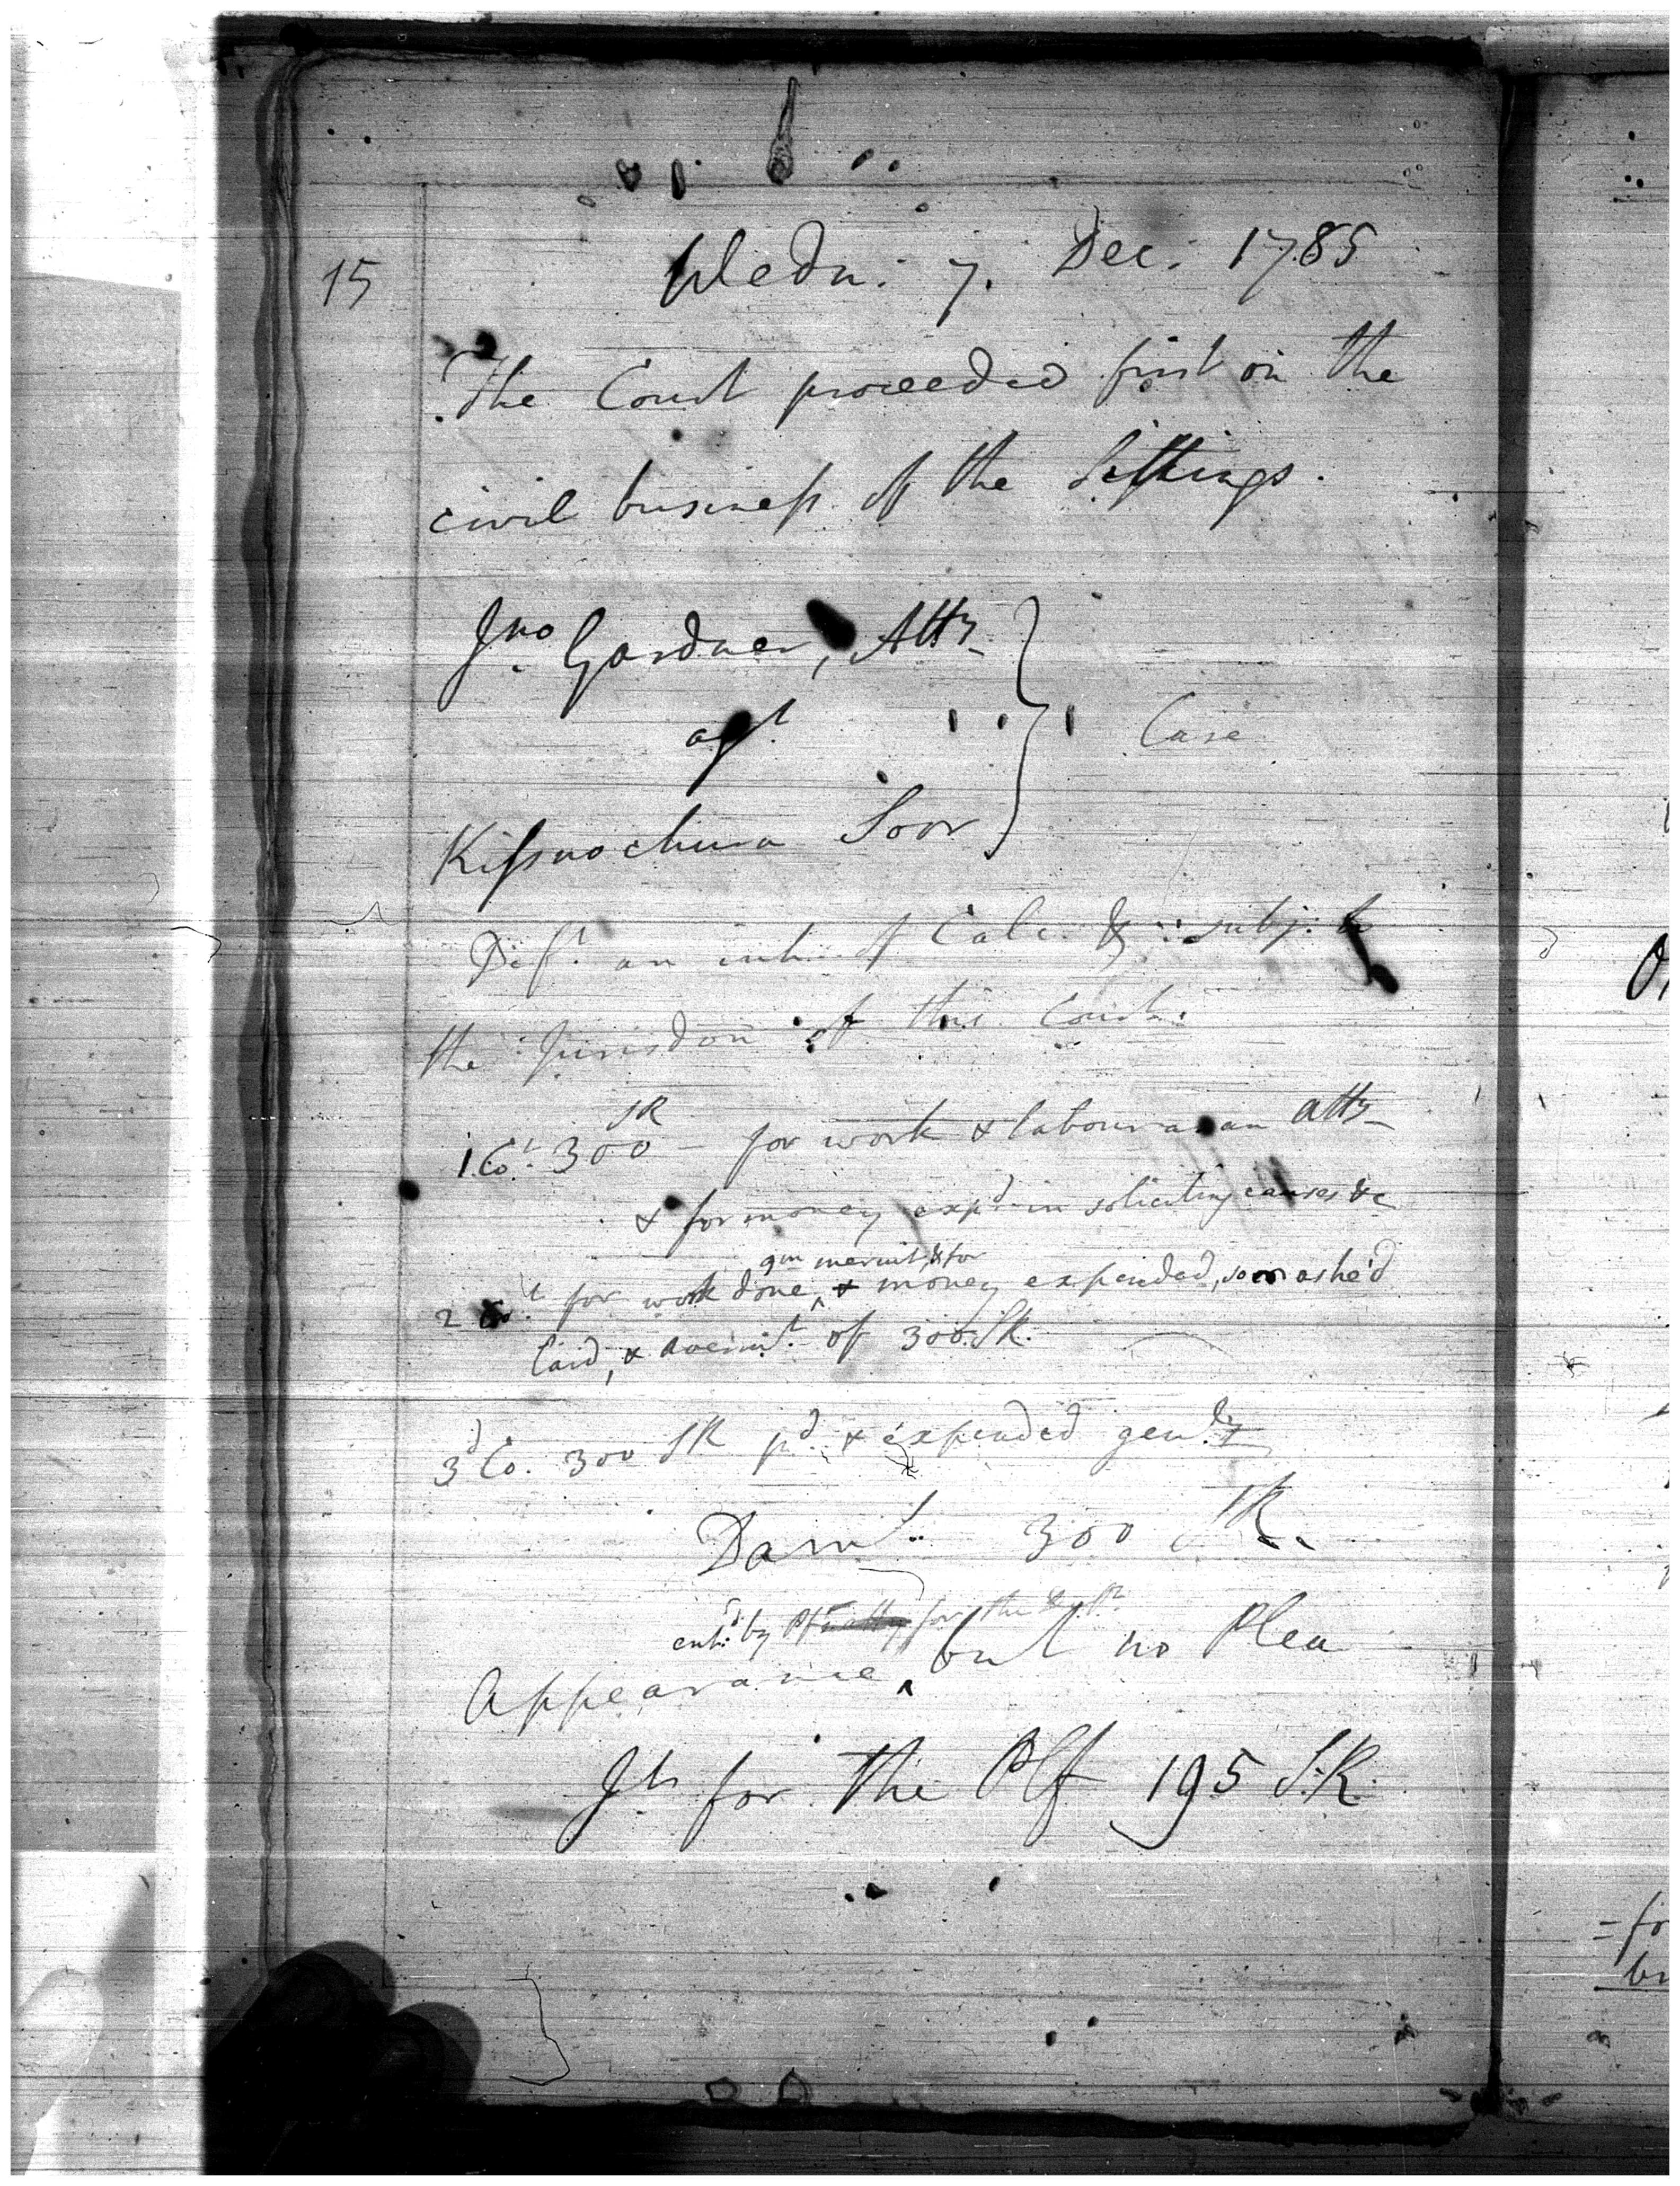 15
Wedn: 7. Dec: 1785
The Court proceeded first on the
civil business of the Sittings.
Jno Gardner, Atty
agt
Kissnochurn Soor
Case
Deft. an inh. of Calc. & subj. to
the Jurisdon of this Court.
1. Cot. 300 SR - for work & labour as an atty
& for money expd in soliciting causes &c
qm meruit, & for
2 Cot. for work done, & money expended, so m as he'd
laid, & avermt. of 300 SR.
3d Co. 300 SR pd. & expended genly
Dams. 300 SR.
entd. by Plfs atty for the Deft
Appearance, but no Plea
Jt for the Plf 195 S.R.